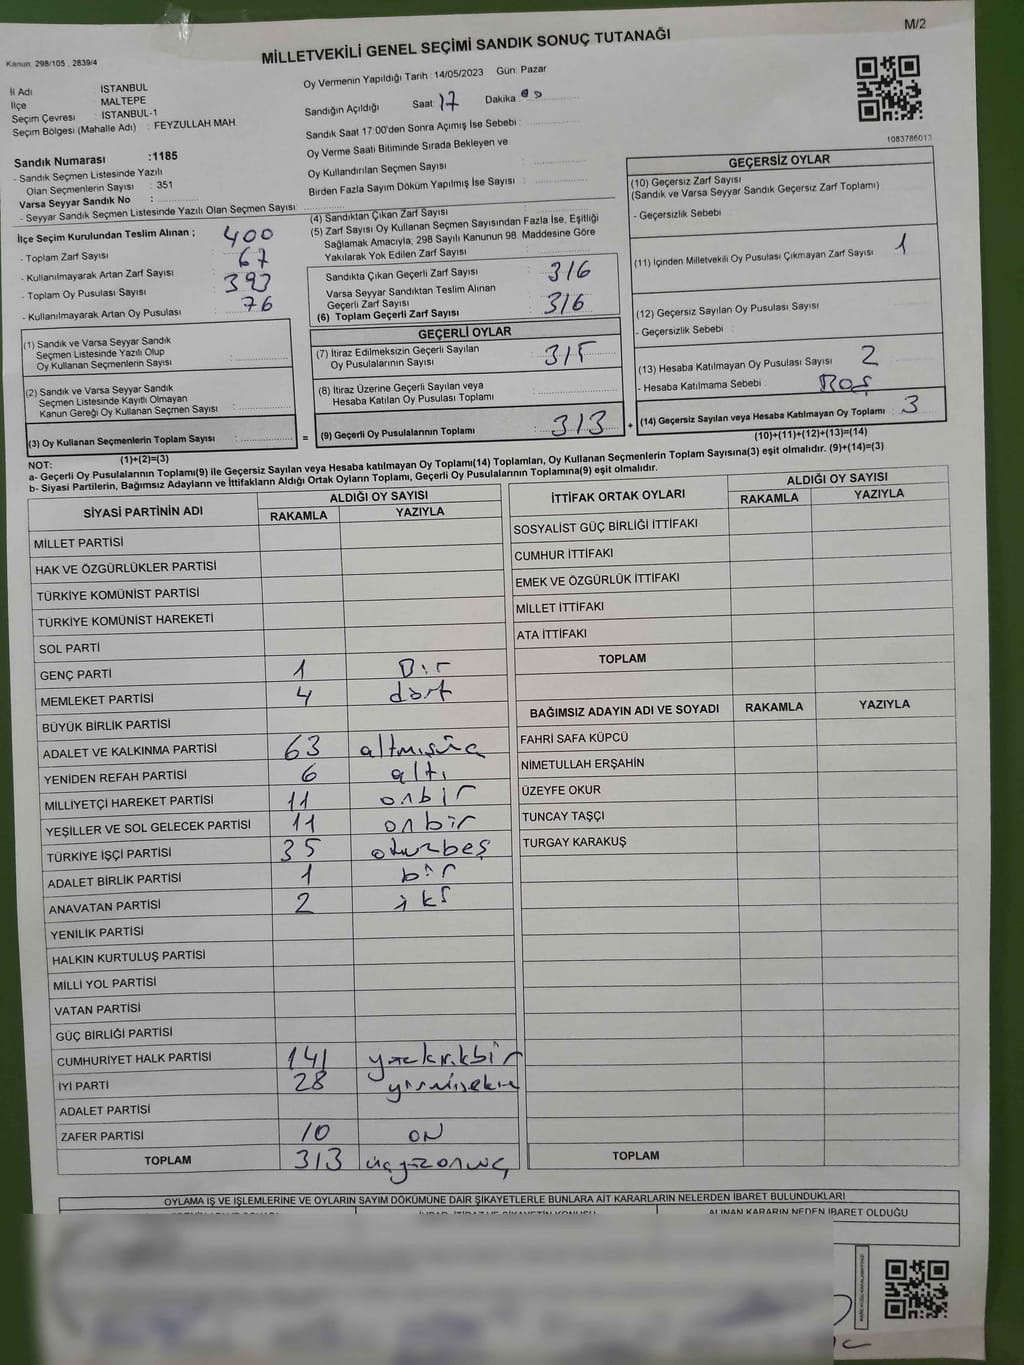 M/2
Kanun: 298/105 , 2839/4
MİLLETVEKİLİ GENEL SEÇİMİ SANDIK SONUÇ TUTANAĞI
İl Adı : İSTANBUL
İlçe : MALTEPE
Seçim Çevresi : İSTANBUL-1
Seçim Bölgesi (Mahalle Adı) : FEYZULLAH MAH.
Oy Vermenin Yapıldığı Tarih : 14/05/2023 Gün: Pazar
Sandığın Açıldığı Saat 17 Dakika 00
Sandık Saat 17:00'den Sonra Açımış İse Sebebi :
Oy Verme Saati Bitiminde Sırada Bekleyen ve
Oy Kullandırılan Seçmen Sayısı :
Birden Fazla Sayım Döküm Yapılmış İse Sayısı :
1083786013
Sandık Numarası :1185
- Sandık Seçmen Listesinde Yazılı
Olan Seçmenlerin Sayısı : 351
Varsa Seyyar Sandık No :
- Seyyar Sandık Seçmen Listesinde Yazılı Olan Seçmen Sayısı:
İlçe Seçim Kurulundan Teslim Alınan ;
- Toplam Zarf Sayısı 400
- Kullanılmayarak Artan Zarf Sayısı 67
- Toplam Oy Pusulası Sayısı 393
- Kullanılmayarak Artan Oy Pusulası 76
(1) Sandık ve Varsa Seyyar Sandık
Seçmen Listesinde Yazılı Olup
Oy Kullanan Seçmenlerin Sayısı :
(2) Sandık ve Varsa Seyyar Sandık
Seçmen Listesinde Kayıtlı Olmayan
Kanun Gereği Oy Kullanan Seçmen Sayısı :
(3) Oy Kullanan Seçmenlerin Toplam Sayısı :
(1)+(2)=(3)
(4) Sandıktan Çıkan Zarf Sayısı
(5) Zarf Sayısı Oy Kullanan Seçmen Sayısından Fazla İse, Eşitliği
Sağlamak Amacıyla, 298 Sayılı Kanunun 98. Maddesine Göre
Yakılarak Yok Edilen Zarf Sayısı :
Sandıkta Çıkan Geçerli Zarf Sayısı : 316
Varsa Seyyar Sandıktan Teslim Alınan
Geçerli Zarf Sayısı :
(6) Toplam Geçerli Zarf Sayısı : 316
GEÇERLİ OYLAR
(7) İtiraz Edilmeksizin Geçerli Sayılan
Oy Pusulalarının Sayısı : 315
(8) İtiraz Üzerine Geçerli Sayılan veya
Hesaba Katılan Oy Pusulası Toplamı :
= (9) Geçerli Oy Pusulalarının Toplamı : 313 +
GEÇERSİZ OYLAR
(10) Geçersiz Zarf Sayısı
(Sandık ve Varsa Seyyar Sandık Geçersiz Zarf Toplamı)
- Geçersizlik Sebebi :
(11) İçinden Milletvekili Oy Pusulası Çıkmayan Zarf Sayısı 1
(12) Geçersiz Sayılan Oy Pusulası Sayısı
- Geçersizlik Sebebi :
(13) Hesaba Katılmayan Oy Pusulası Sayısı 2
- Hesaba Katılmama Sebebi : Boş
(14) Geçersiz Sayılan veya Hesaba Katılmayan Oy Toplamı : 3
(10)+(11)+(12)+(13)=(14)
NOT:
a- Geçerli Oy Pusulasının Toplamı(9) ile Geçersiz Sayılan veya Hesaba katılmayan Oy Toplamı(14) Toplamları, Oy Kullanan Seçmenlerin Toplam Sayısına(3) eşit olmalıdır. (9)+(14)=(3)
b- Siyasi Partilerin, Bağımsız Adayların ve İttifakların Aldığı Ortak Oyların Toplamı, Geçerli Oy Pusulalarının Toplamına(9) eşit olmalıdır.
SİYASİ PARTİNİN ADI
ALDIĞI OY SAYISI
RAKAMLA YAZIYLA
MİLLET PARTİSİ
HAK VE ÖZGÜRLÜKLER PARTİSİ
TÜRKİYE KOMÜNİST PARTİSİ
TÜRKİYE KOMÜNİST HAREKETİ
SOL PARTİ
GENÇ PARTİ 1 Bir
MEMLEKET PARTİSİ 4 dört
BÜYÜK BİRLİK PARTİSİ
ADALET VE KALKINMA PARTİSİ 63 altmışüç
YENİDEN REFAH PARTİSİ 6 altı
MİLLİYETÇİ HAREKET PARTİSİ 11 onbir
YEŞİLLER VE SOL GELECEK PARTİSİ 11 onbir
TÜRKİYE İŞÇİ PARTİSİ 35 otuzbeş
ADALET BİRLİK PARTİSİ 1 bir
ANAVATAN PARTİSİ 2 iki
YENİLİK PARTİSİ
HALKIN KURTULUŞ PARTİSİ
MİLLİ YOL PARTİSİ
VATAN PARTİSİ
GÜÇ BİRLİĞİ PARTİSİ
CUMHURİYET HALK PARTİSİ 141 yüzkırkbir
İYİ PARTİ 28 yirmisekiz
ADALET PARTİSİ
ZAFER PARTİSİ 10 ON
TOPLAM 313 üçyüzonüç
İTTİFAK ORTAK OYLARI
ALDIĞI OY SAYISI
RAKAMLA YAZIYLA
SOSYALİST GÜÇ BİRLİĞİ İTTİFAKI
CUMHUR İTTİFAKI
EMEK VE ÖZGÜRLÜK İTTİFAKI
MİLLET İTTİFAKI
ATA İTTİFAKI
TOPLAM
BAĞIMSIZ ADAYIN ADI VE SOYADI RAKAMLA YAZIYLA
FAHRİ SAFA KÜPCÜ
NİMETULLAH ERŞAHİN
ÜZEYFE OKUR
TUNCAY TAŞÇI
TURGAY KARAKUŞ
TOPLAM
OYLAMA İŞ VE İŞLEMLERİNE VE OYLARIN SAYIM DÖKÜMÜNE DAİR ŞİKAYETLERLE BUNLARA AİT KARARLARIN NELERDEN İBARET BULUNDUKLARI
ALINAN KARARIN NEDEN İBARET OLDUĞU